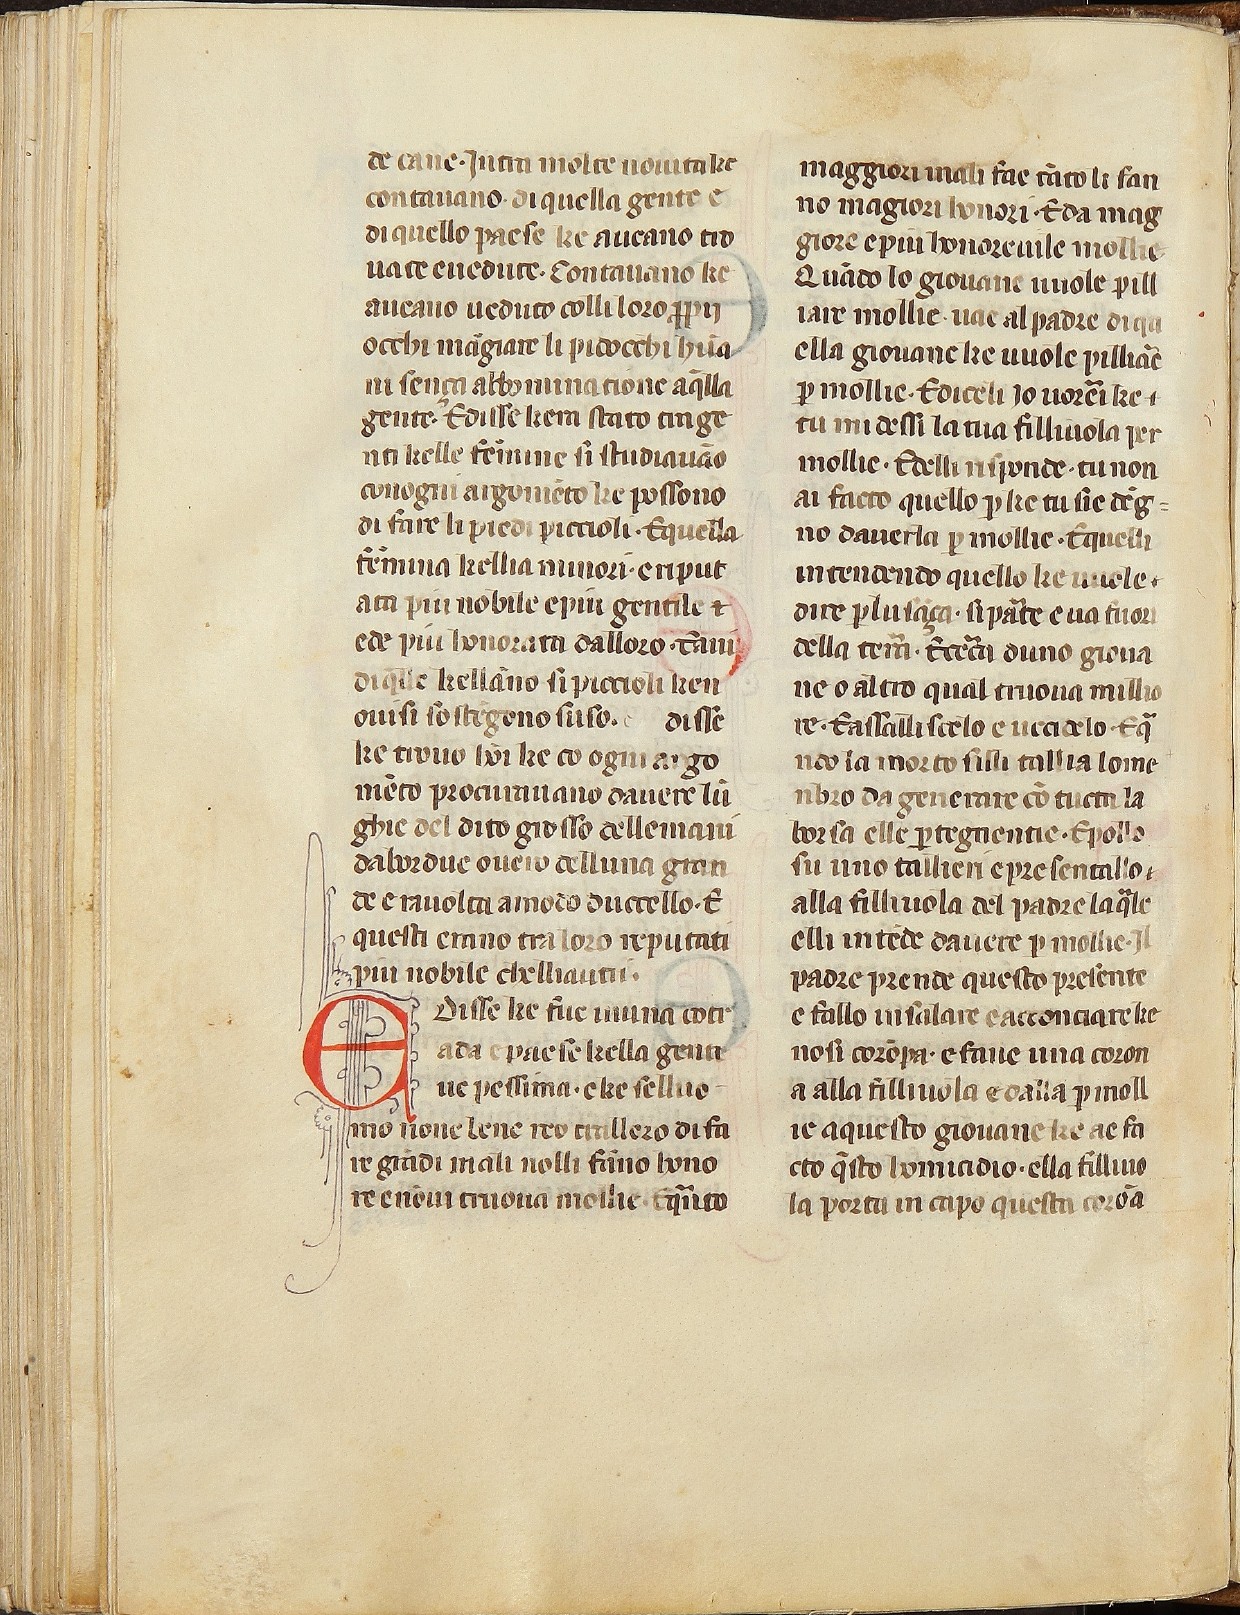 de cane· Jntra molte novita ke
contavano· di quella gente e
di quello paese ke aveano tro
vate e vedute· Contavano ke
aveano veduto colli loro ꝓpii
occhi mãgiare li pidocchi huã
ni sença abbominatione a q̃lla
gente· E disse kera stato tinge
nti kelle fẽmine si studiavão
conogni argomẽto ke possono
di fare li piedi piccioli· E quella
fẽmina kellia minori· e riput
ata piu nobile e piu gentile ⁊
ede piu honorata dalloro· Tãni
di q̃lle kellãno si piccioli ken
oui si sostẽgeno suso· disse
ke trovo lõi ke co ogni argo
mẽto procuravano davere lũ
ghie del dito grosso delle mani
dabordue overo delluna gran
de e ravolta a modo duccello· E
questi erano tra loro reputati
piu nobile chelliavea·
E Disse ke fue inuna cotr
ada e paese kella gente
ve pessima· e ke selluo
mo none bene reo trallero di fa
re grãdi mali nolli fãno hono
re enõvi truova mollie· E quãto
maggiori mali fae tãto li fan
no magiori honori· E da mag
giore e piu honorevile mollie
Quãdo lo giovane vuole pill
iare mollie· vae al padre di qu
ella giovane ke vuole pilliaré
ꝑ mollie· E diceli Jo vorrei ke ·
tu mi dessi la tua filliuola per
mollie· Edelli risponde· tu non
ai facto quello ꝑ ke tu sie deg=
no daverla ꝑ mollie· E quelli
intendendo quello ke vuole ·
dire ꝑ lusãça· si pãrte e va fuori
della terrã· E cercã duno giova
ne o altro qual truova millio
re· E assalliscelo e uccidelo· E q̃
ndo la morto silli tallia lome
nbro da generare cõ tucta la
borsa elle ꝑtegnentie· E pollo
su uno tallieri e presentallo ·
alla filliuola del padre la q̃le
elli intẽde davere ꝑ mollie· Jl
padre prende questo presente
e fallo insalare e acconciare ke
nosi corõpa· e fane una coron
a alla filliuola e dalla ꝑ moll
ie a questo giovane ke ae fa
cto q̃sto homicidio· ella filliuo
la porta in capo questa corõa